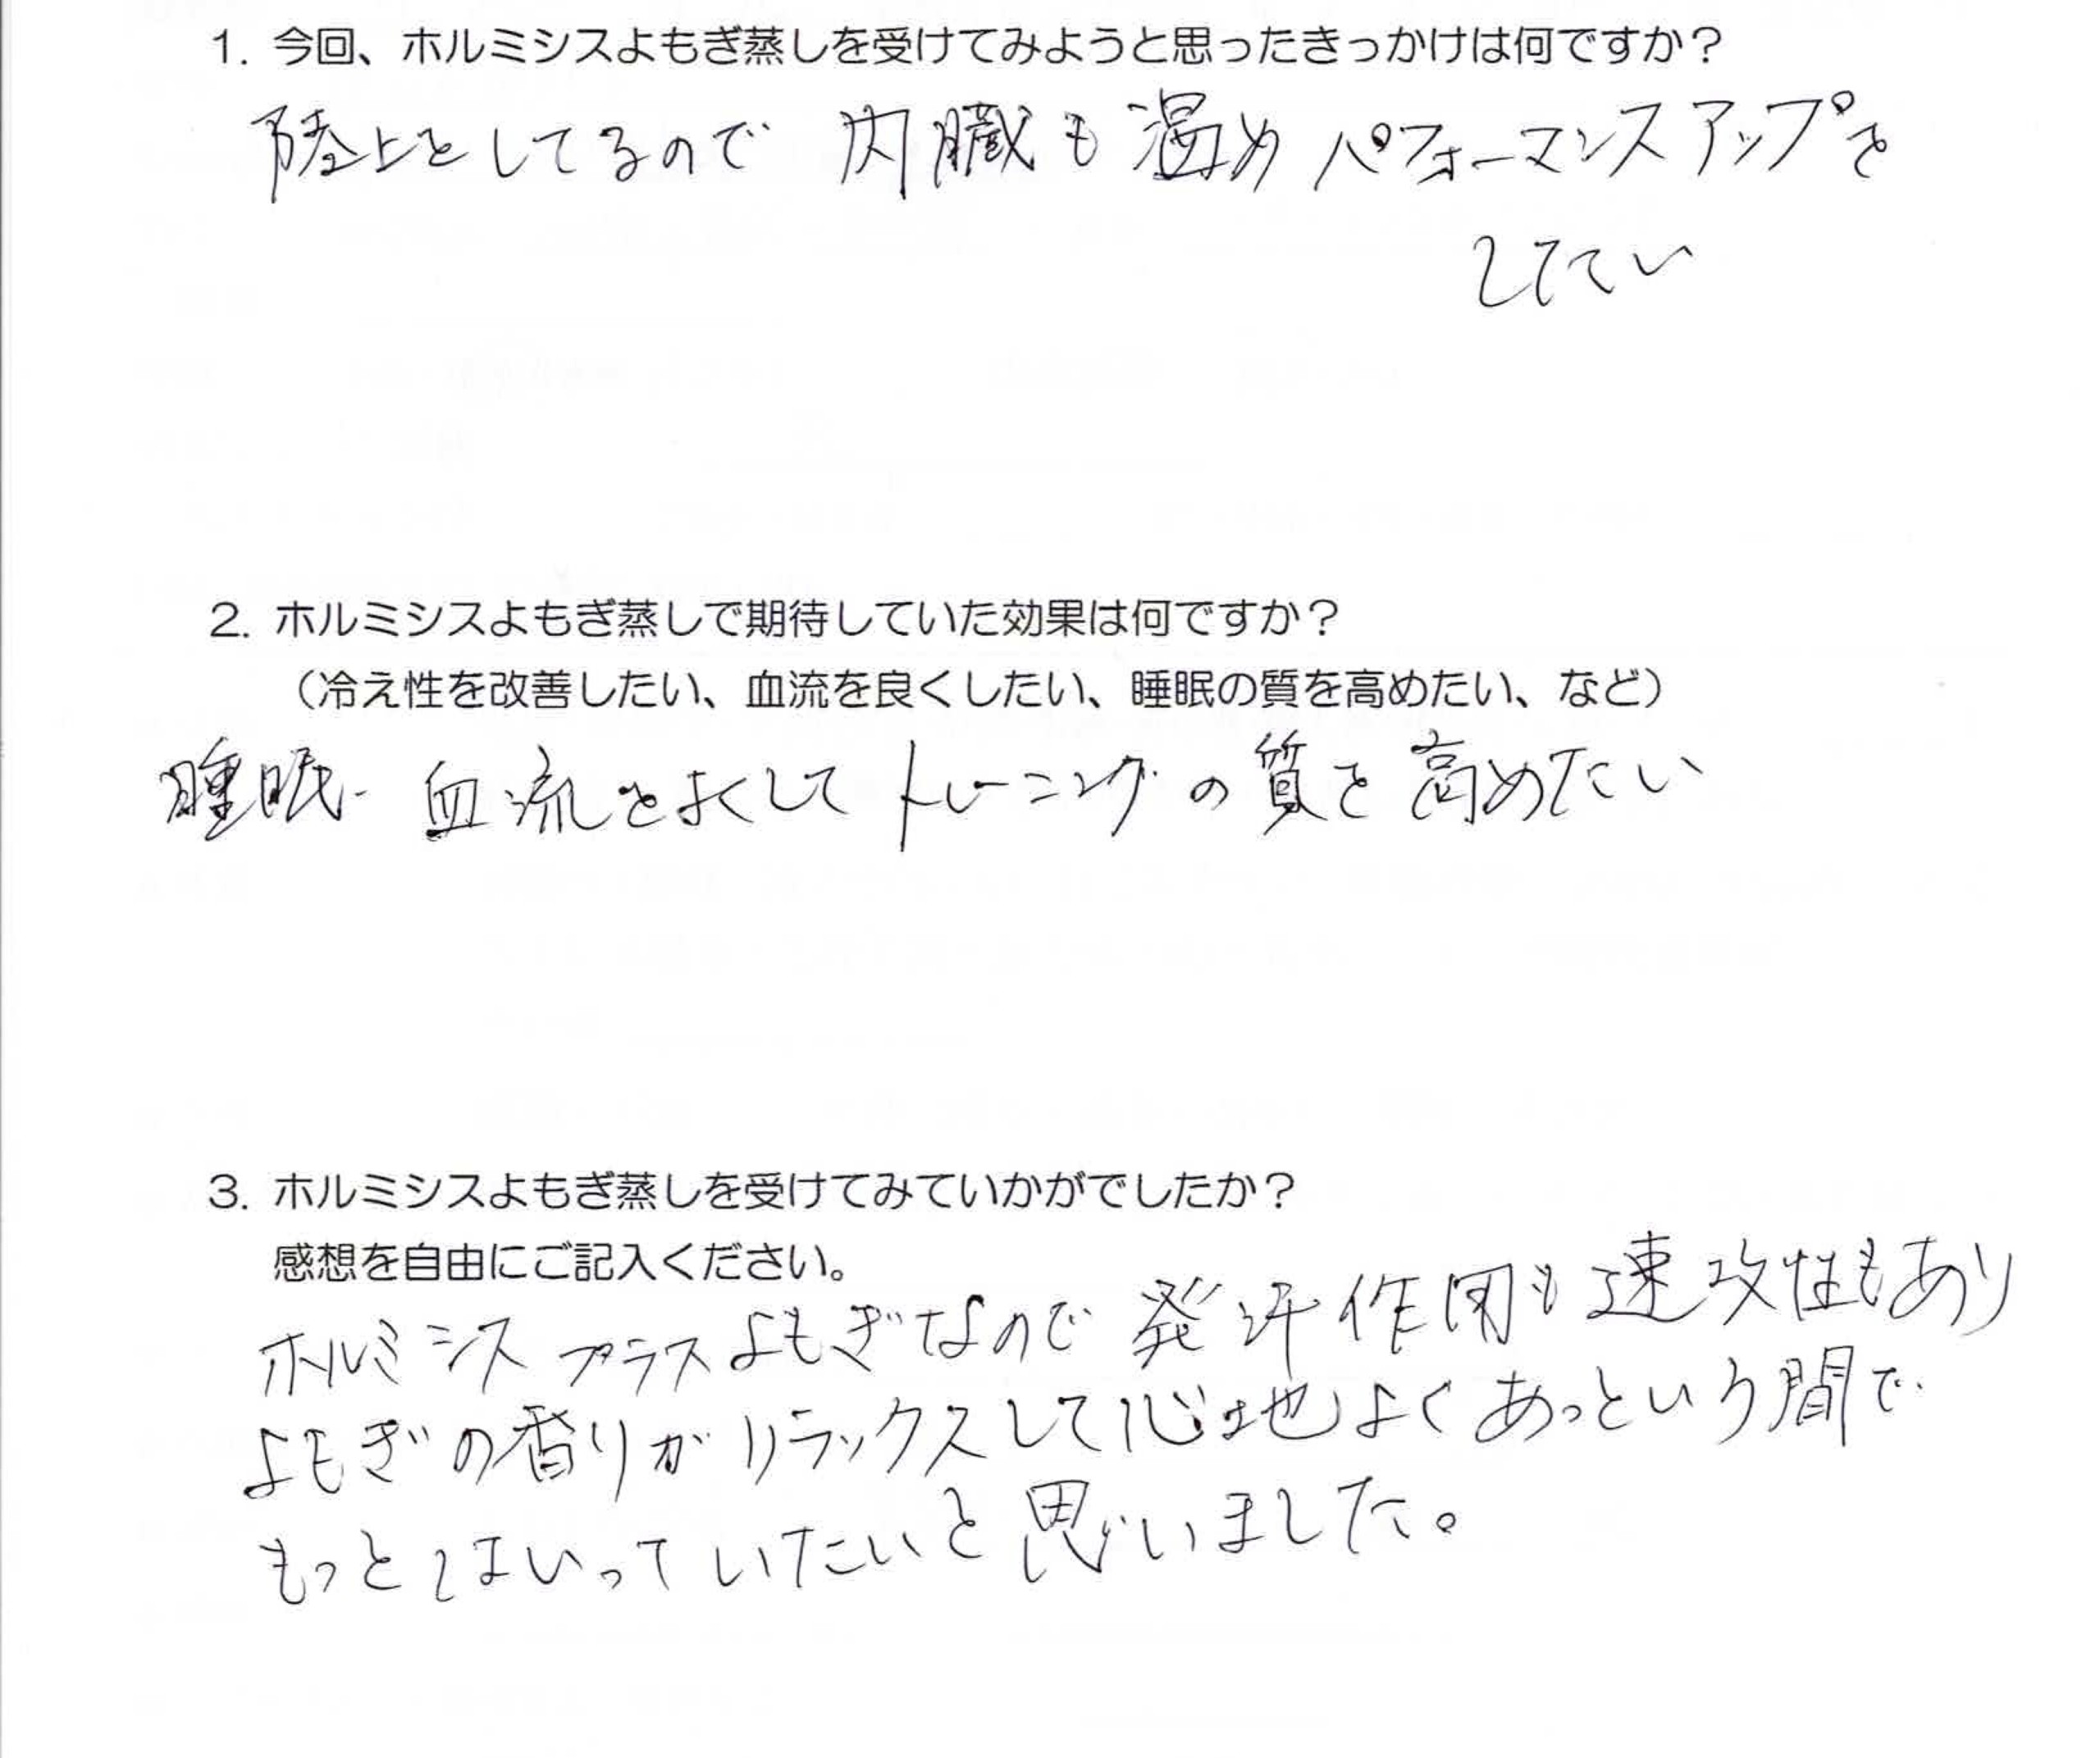 1. 今回、ホルミシスよもぎ蒸しを受けてみようと思ったきっかけは何ですか？
陸上をしてるので 内臓も温め パフォーマンスアップを
してい
2. ホルミシスよもぎ蒸しで期待していた効果は何ですか？
（冷え性を改善したい、血流を良くしたい、睡眠の質を高めたい、など）
睡眠・血流をよくして トレーニングの質を高めたい
3. ホルミシスよもぎ蒸しを受けてみていかがでしたか？
感想を自由にご記入ください。
ホルミシス プラスよもぎなので 発汗作用も速攻性もあり
よもぎの香りがリラックスして心地よく あっという間で
もっとはいっていたいと思いました。